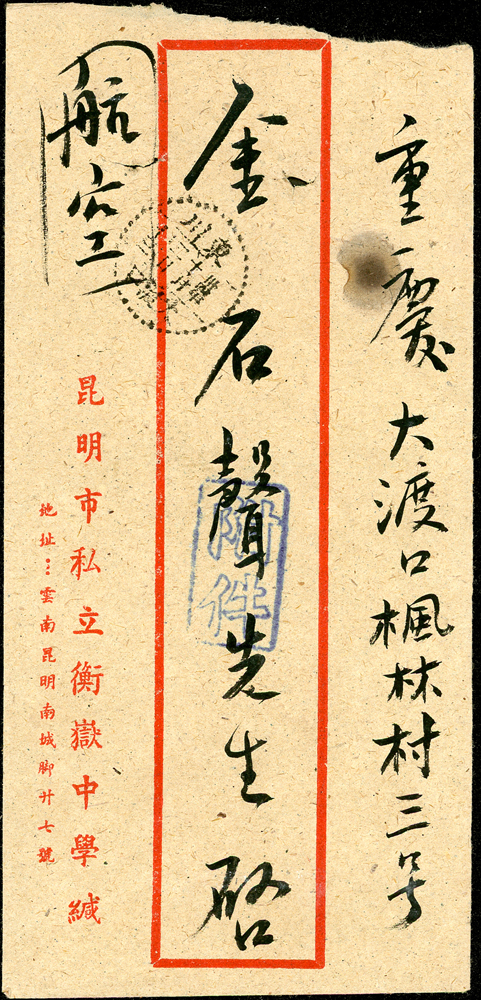 重慶 大渡口楓林村三号
金石聲先生啓
附件
航空
東川
昆明市私立衡嶽中學緘
地址：雲南昆明南城脚廿七號